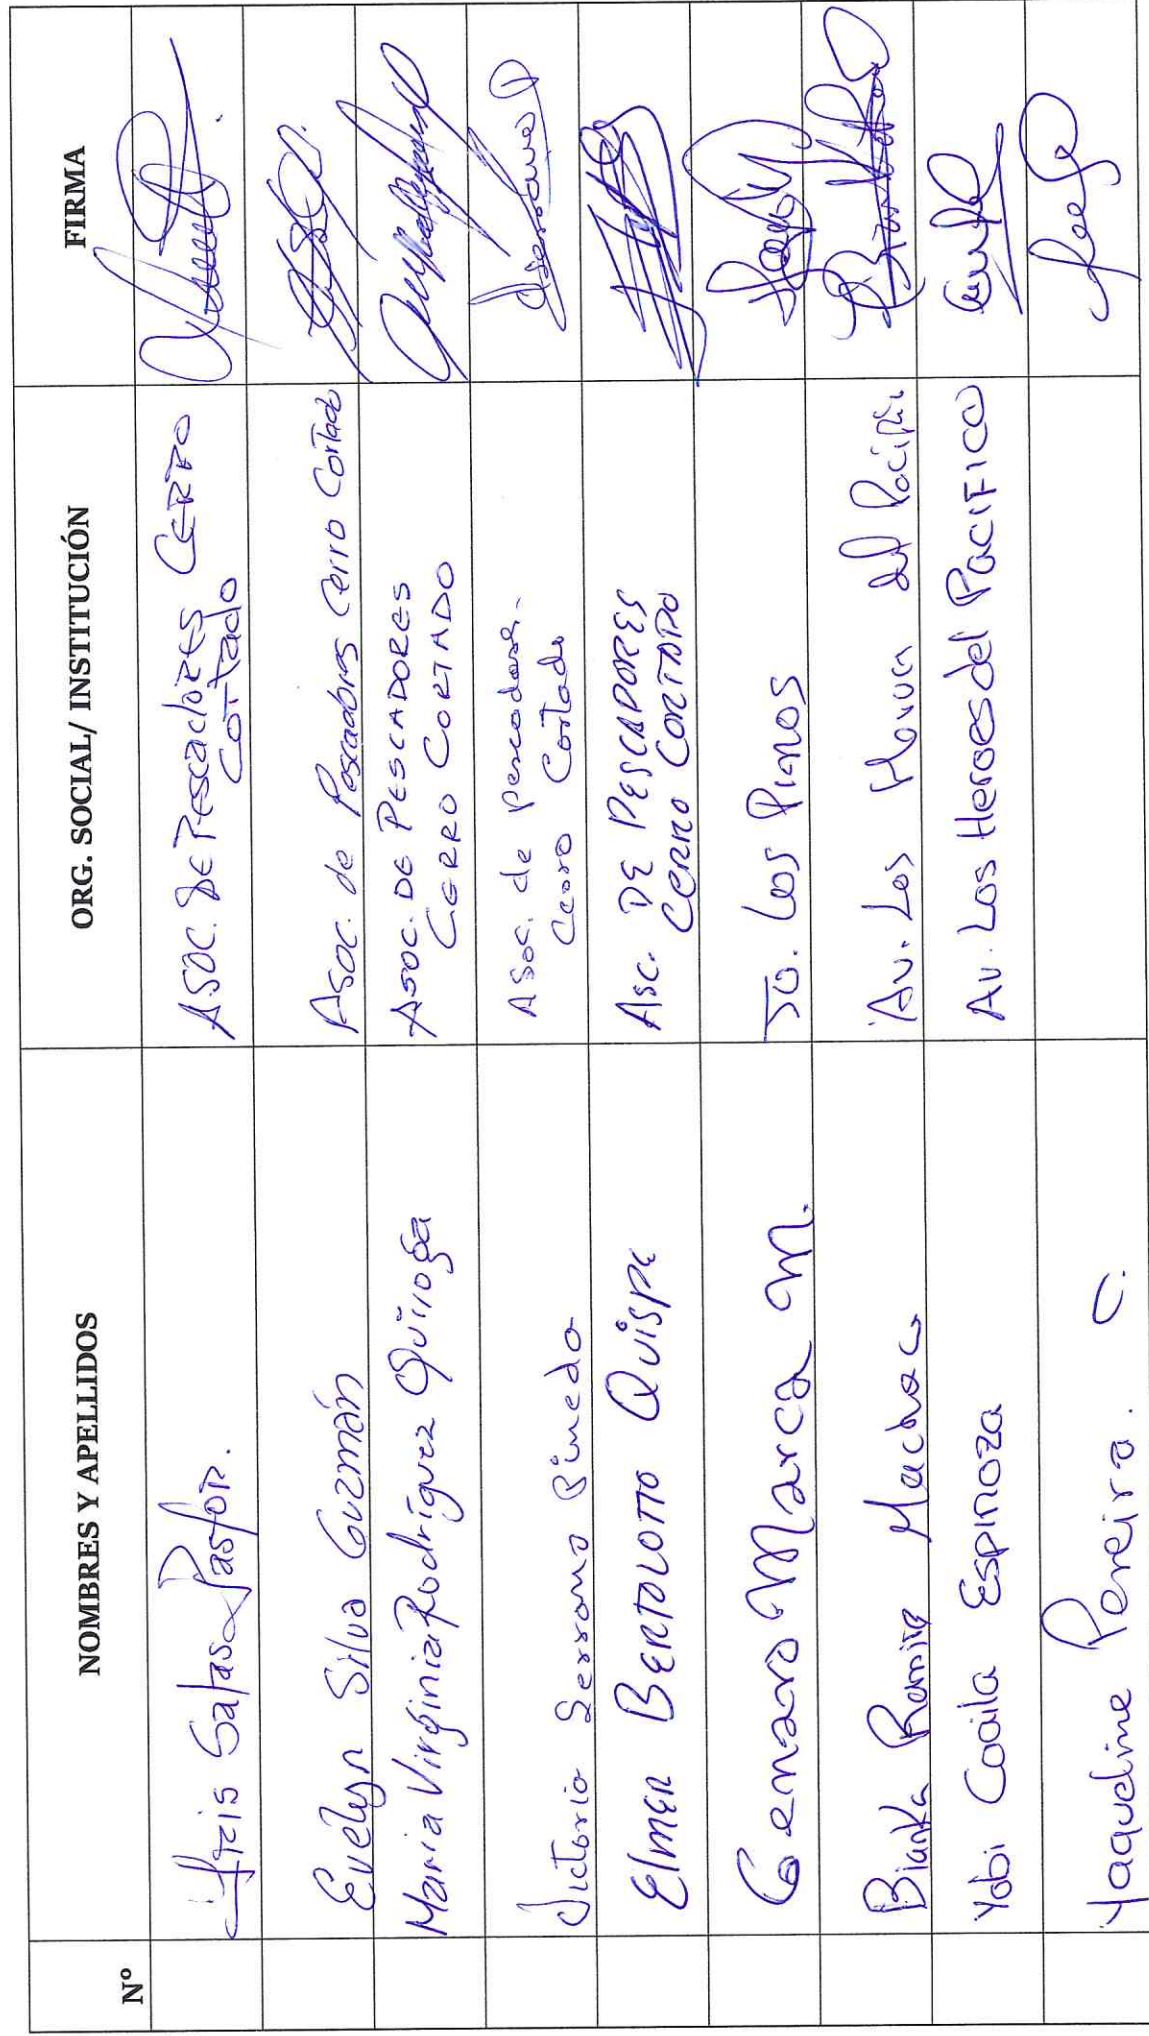 Nº NOMBRES Y APELLIDOS ORG. SOCIAL/ INSTITUCIÓN FIRMA
Iris Salas Pastor. ASOC. DE Pescadores CERRO
Cortado
Evelyn Silva Guzmán Asoc. de Pescadores Cerro Cortado
Maria Virginia Rodríguez Quiroga ASOC. DE PESCADORES
CERRO CORTADO
Victoria Serrano Pinedo Asoc. de pescadores
Cerro Cortado
Elmer BERTOLOTTO Quispe Asc. DE PESCADORES
CERRO CORTADO
Genaro Marca M. JV. Los Pinos
Bianka Ramirez Machaca Av. Los del Pacifi
Yobi Coaila Espinoza Av. Los Heroes del PACIFICO
Yaqueline Pereira. C.